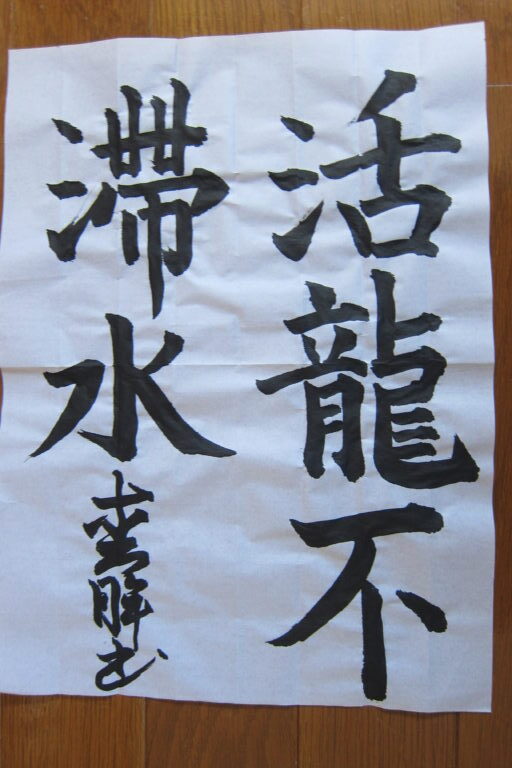 活龍不
滞水